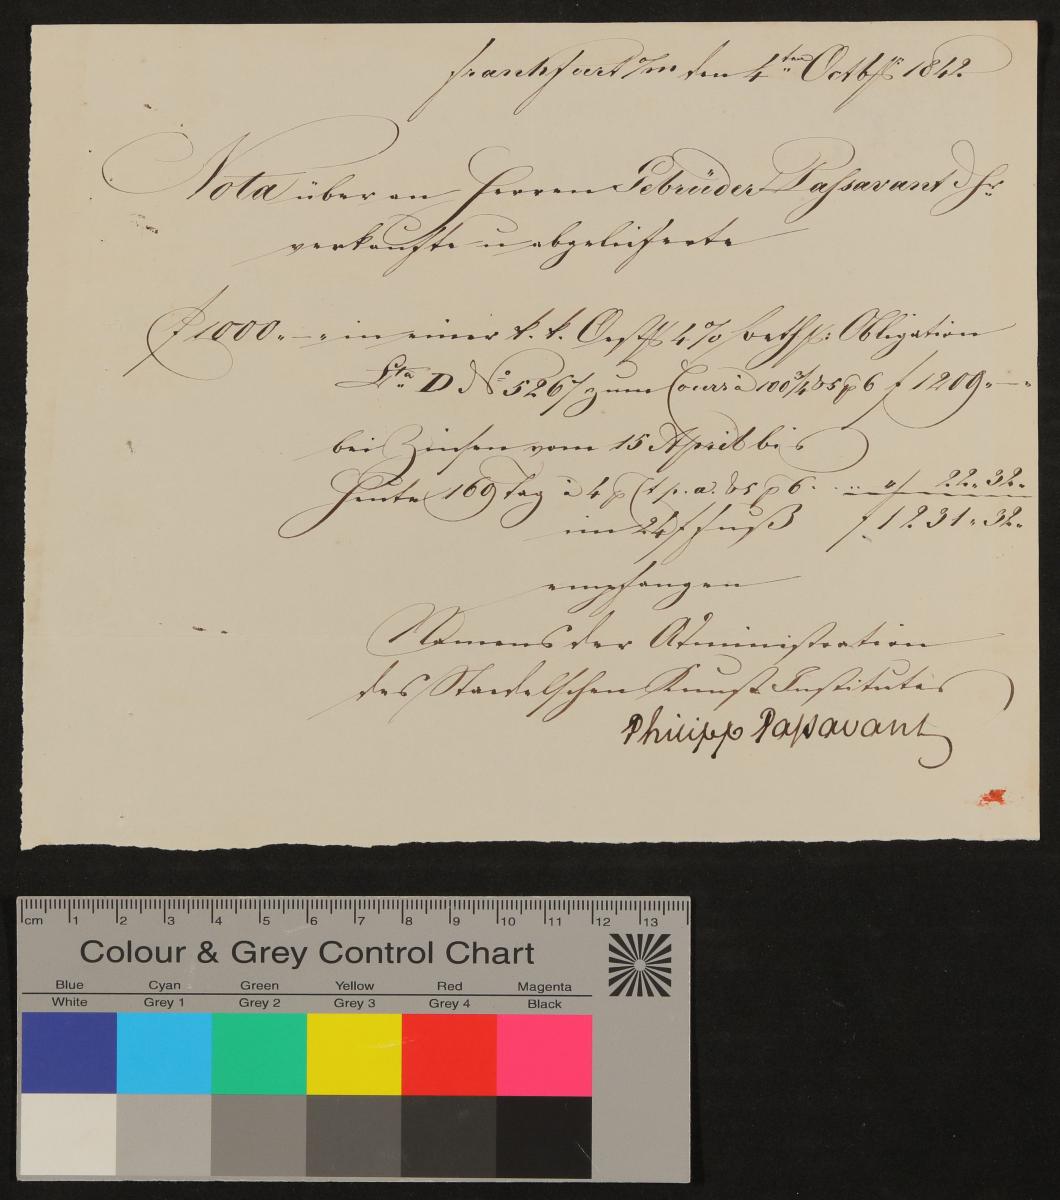 Frankfurt a/m den 4ten Octbr 1842
Nota über an Herren Gebrüder Passavant d Hr
verkaufte u abgelieferte
f 1000 „—„ in einer k. k. Oestr 4% Bethm: Obligation
Lta D No 5267 zum Cours à 100 3/4 & 5 p 6 f 1209 „—„
bei Zinsen vom 15 April bis
Heute 169 Tag à 4 p Ct p. a. & 5 p 6 . . „ „ f 22 „ 32 „
im 24 f Fuß f 1231 „ 32 „
empfangen
Namens der Administration
des Staedelschen Kunst Institutes
Philipp Passavant
cm 1 2 3 4 5 6 7 8 9 10 11 12 13
Colour & Grey Control Chart
Blue Cyan Green Yellow Red Magenta
White Grey 1 Grey 2 Grey 3 Grey 4 Black